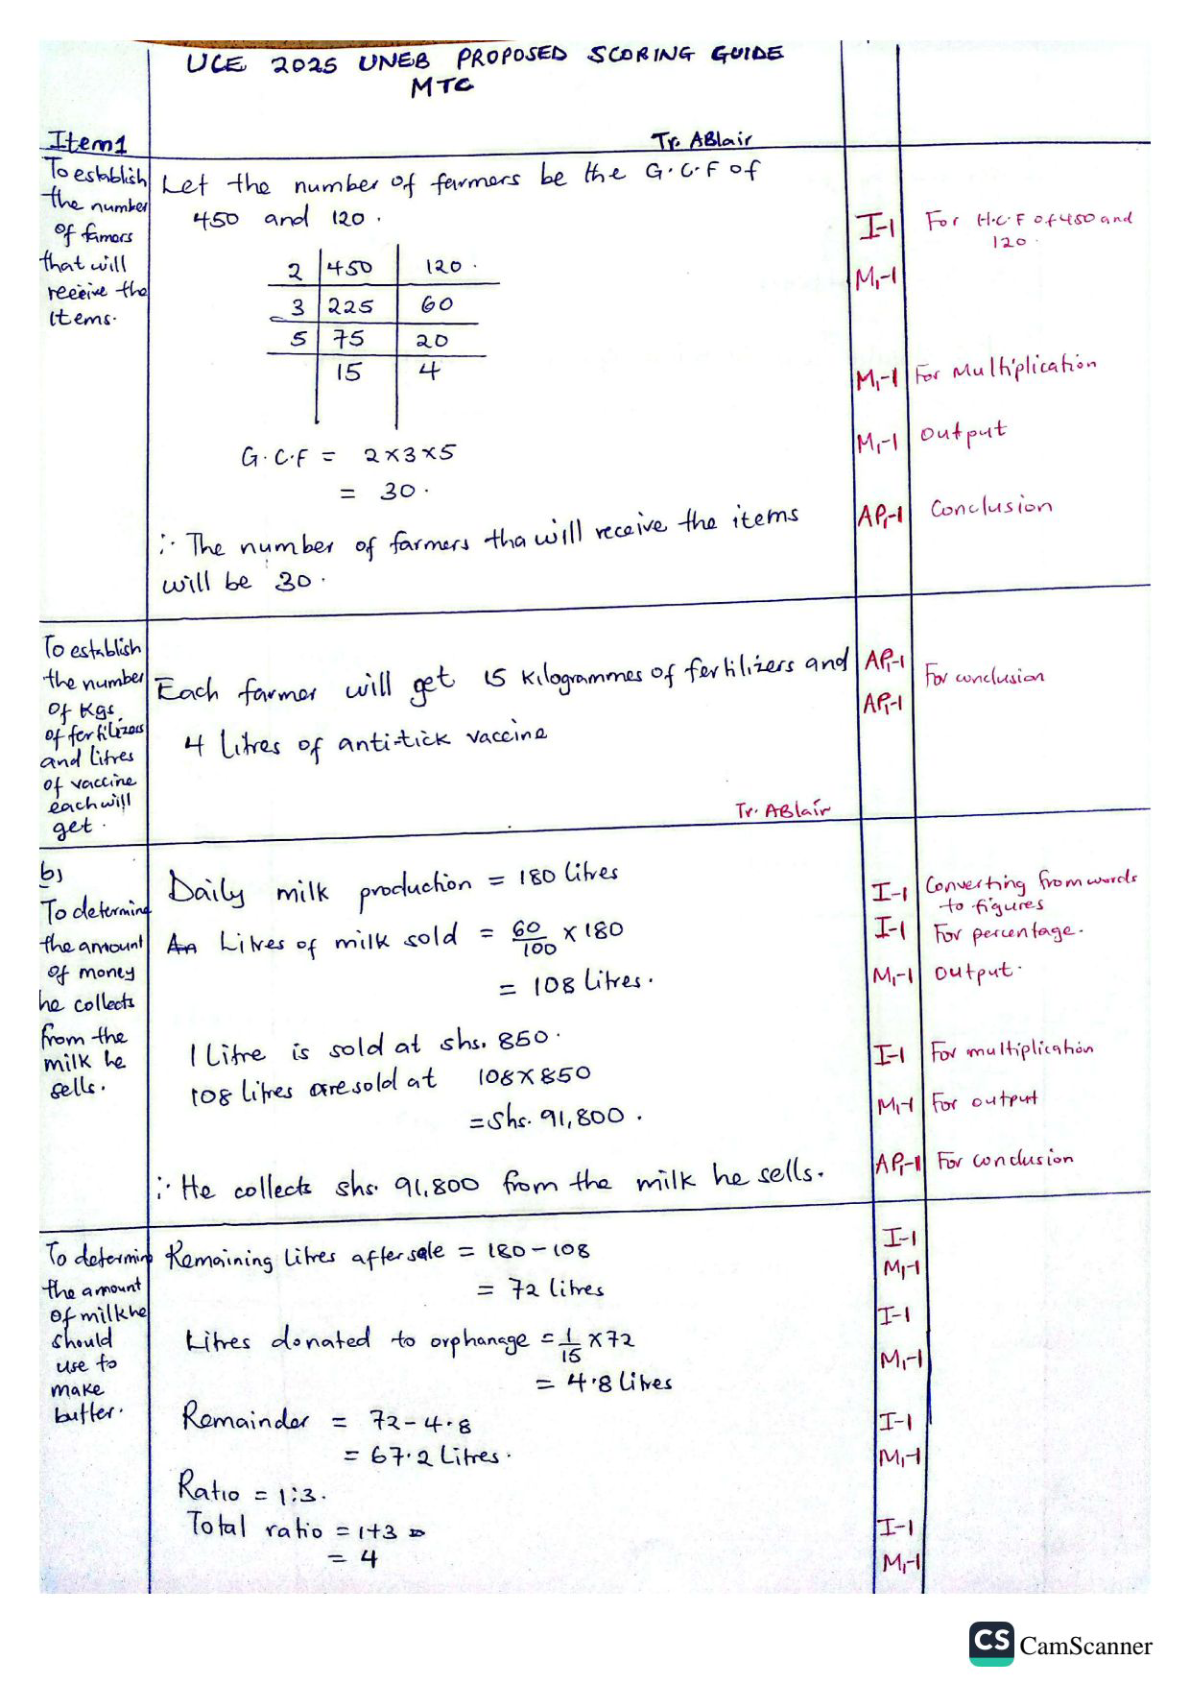 UCE 2025 UNEB PROPOSED SCORING GUIDE
MTC
Item1
Tr. ABlair
To establish
the number
of famors
that will
receive the
items.
Let the number of farmers be the G.C.F of
450 and 120.
2 450 120.
3 225 60
5 75 20
15 4
G.C.F = 2x3x5
= 30.
∴ The number of farmers tha will receive the items
will be 30.
I-1 For H.C.F of 450 and
120.
M1-1
M1-1 For Multiplication
M1-1 Output
AP1-1 Conclusion
To establish
the number
of Kgs
of fertilizers
and litres
of vaccine
each will
get.
Each farmer will get 15 kilogrammes of fertilizers and
4 litres of anti-tick vaccine
Tr. ABlair
AP1-1 For conclusion
AP1-1
b)
To determine
the amount
of money
he collects
from the
milk he
sells.
Daily milk production = 180 litres
An Litres of milk sold = 60/100 x 180
= 108 litres.
1 Litre is sold at shs. 850.
108 litres are sold at 108x850
= Shs. 91,800.
∴ He collects shs. 91,800 from the milk he sells.
I-1 Converting from words
to figures
I-1 For percentage.
M1-1 Output.
I-1 For multiplication
M1-1 For output
AP1-1 For conclusion
To determine
the amount
of milk he
should
use to
make
butter.
Remaining litres after sale = 180-108
= 72 litres
Litres donated to orphanage = 1/15 x 72
= 4.8 litres
Remainder = 72-4.8
= 67.2 Litres.
Ratio = 1:3.
Total ratio = 1+3
= 4
I-1
M1-1
I-1
M1-1
I-1
M1-1
I-1
M1-1
CS CamScanner